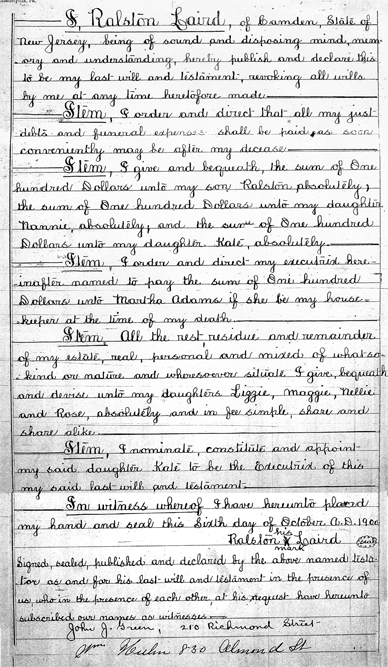 I, Ralston Laird, of Camden, State of
New Jersey, being of sound and disposing mind, mem-
ory and understanding, hereby publish and declare this
to be my last will and testament, revoking all wills
by me at any time heretofore made
Item, I order and direct that all my just
debts and funeral expenses shall be paid as soon
conveniently may be after my decease.
Item, I give and bequeath, the sum of One
hundred Dollars unto my son Ralston absolutely;
the sum of One hundred Dollars unto my daughter
Nannie, absolutely; and the sum of One hundred
Dollars unto my daughter Kate, absolutely.
Item, I order and direct my executrix here-
inafter named to pay the sum of One hundred
Dollars unto Martha Adams if she be my house-
keeper at the time of my death.
Item, All the rest, residue and remainder
of my estate, real, personal and mixed of what-so-
kind or nature and wheresoever situate I give, bequeath
and devise unto my daughters Lizzie, Maggie, Nellie
and Rose, absolutely and in fee simple, share and
share alike.
Item, I nominate, constitute and appoint
my said daughter Kate to be the Executrix of this
my said last will and testament.
In witness whereof I have hereunto placed
my hand and seal this Sixth day of October A.D. 1900
his
Ralston X Laird
mark
Signed, sealed, published and declared by the above named testa-
tor as and for his last will and testament in the presence of
us who in the presence of each other, at his request have hereunto
subscribed our names as witnesses.
John J. Green, 210 Richmond Street
Wm 830 Almond St